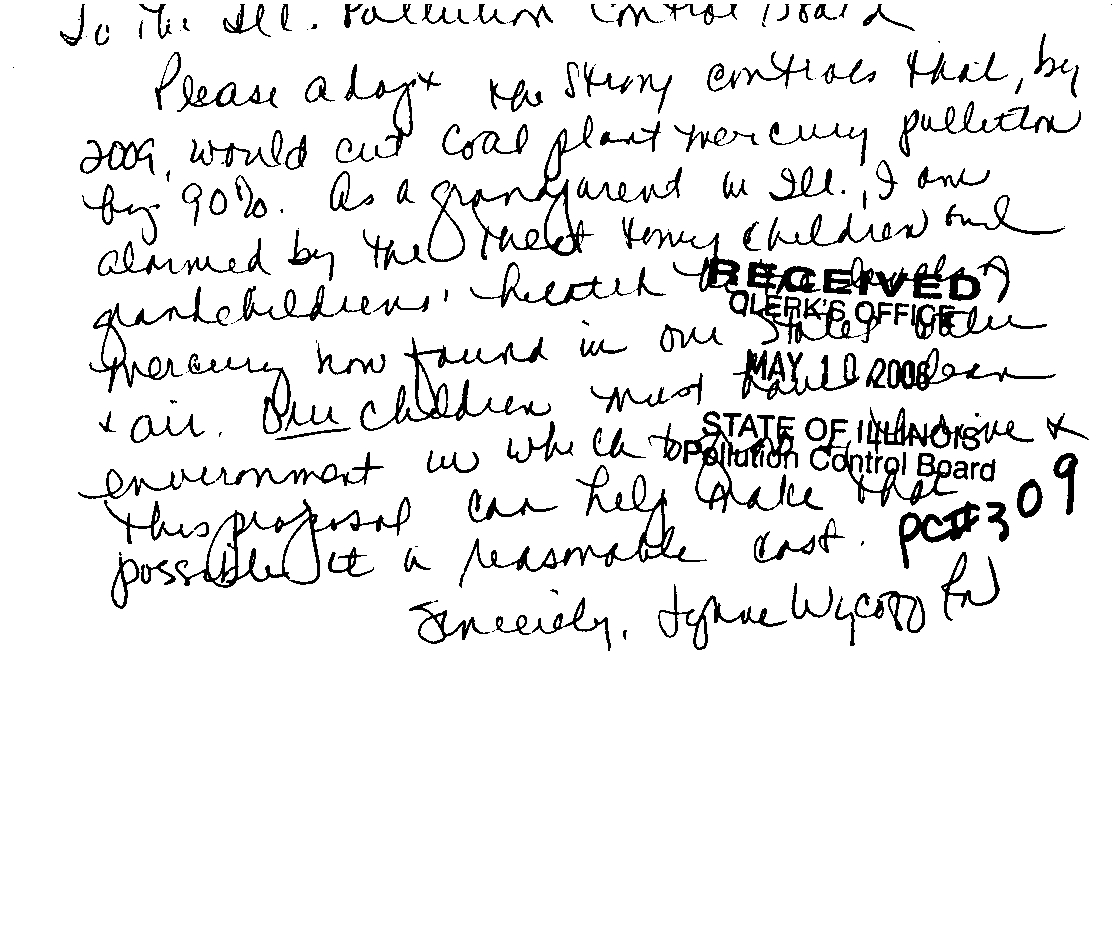 To the Ill. Pollution Control Board
Please adopt the strong controls that, by
2009, would cut coal plant mercury pollution
by 90%. As a grandparent in Ill., I am
alarmed by the threat to my children and
grandchildrens' health
RECEIVED
CLERK'S OFFICE
mercury now found in our States water
MAY 10 2006
+ air. Our children must have clean
STATE OF ILLINOIS
environment in which to
Pollution Control Board
this proposal can help make that
PC#309
possible at a reasonable cost.
Sincerely, Lynne Wycoff RN